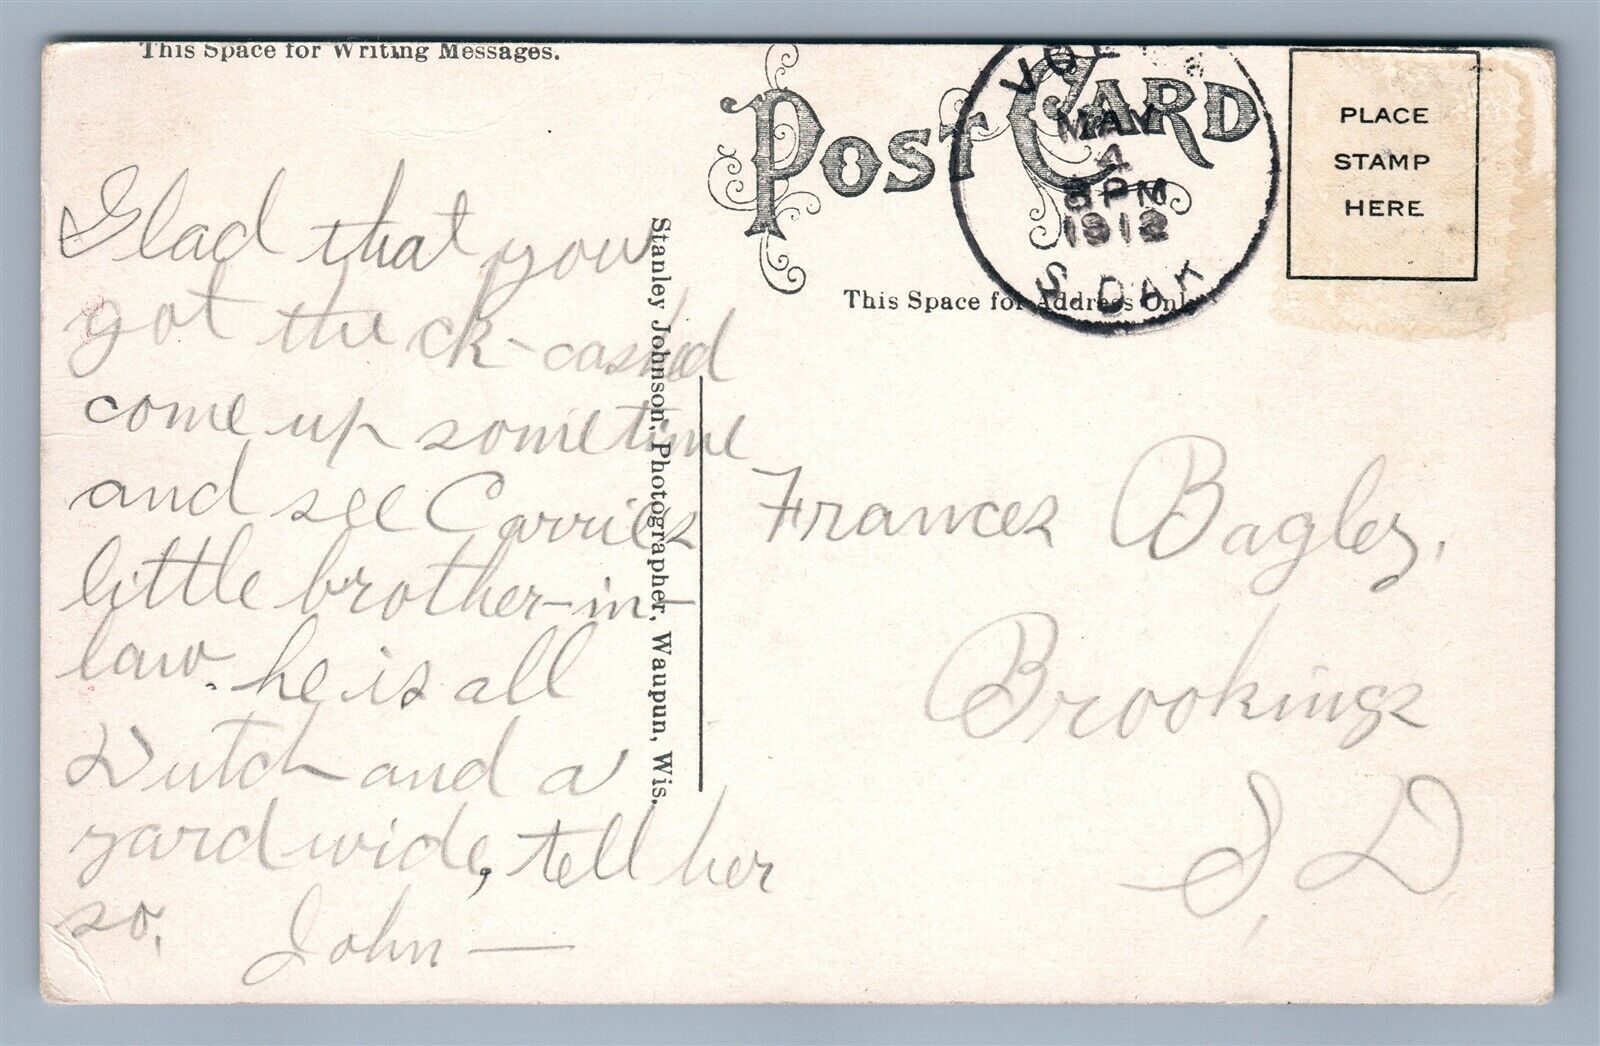 This Space for Writing Messages.
POST CARD
MAY
4
PM
1912
S. DAK
PLACE
STAMP
HERE
This Space for Address Only
Glad that you
got the ck-cashed
come up sometime
and see Carries
little brother-in-
law. he is all
Dutch and a
yard wide, tell her
so. John —
Stanley Johnson, Photographer, Waupun, Wis.
Frances Bagley,
Brookings
S. D.